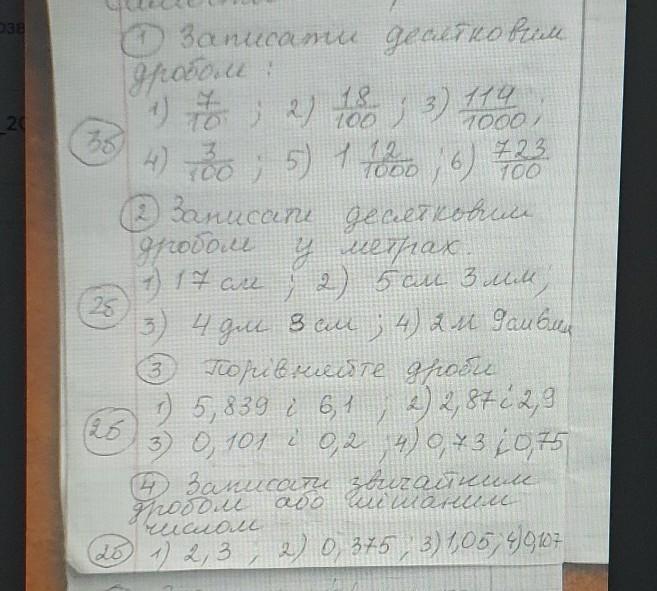 ① Записати десятковим
дробом :
1) 7/10 ; 2) 18/100 ; 3) 114/1000 ;
3б
4) 3/100 ; 5) 1 12/1000 ; 6) 723/100
② Записати десятковим
дробом у метрах.
1) 17 см ; 2) 5 см 3 мм ;
2б
3) 4 дм 3 см ; 4) 2 м 9 см 6 мм
③ Порівняйте дроби
1) 5,839 і 6,1 ; 2) 2,87 і 2,9
2б
3) 0,101 і 0,2 ; 4) 0,73 і 0,75
④ Записати звичайним
дробом або мішаним
числом
2б 1) 2,3 ; 2) 0,375 ; 3) 1,05 ; 4) 0,107